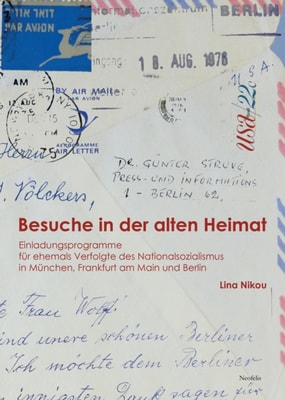 דואר אויר
PAR AVION
BERLIN
18. AUG. 1976
AM
BY AIR MAIL
PAR AVION
AEROGRAMME
AIR LETTER
U S A
USA 22c
75
DR. GÜNTER STRUVE,
PRESS- UND INFORMATIONS
1 - BERLIN 62,
Herrn
Völckers,
Besuche in der alten Heimat
Einladungsprogramme
für ehemals Verfolgte des Nationalsozialismus
in München, Frankfurt am Main und Berlin
Lina Nikou
te Frau Wolff
sind unsere schönen Berliner
Ich möchte dem Berliner
innigsten Dank sagen für
Neofelis